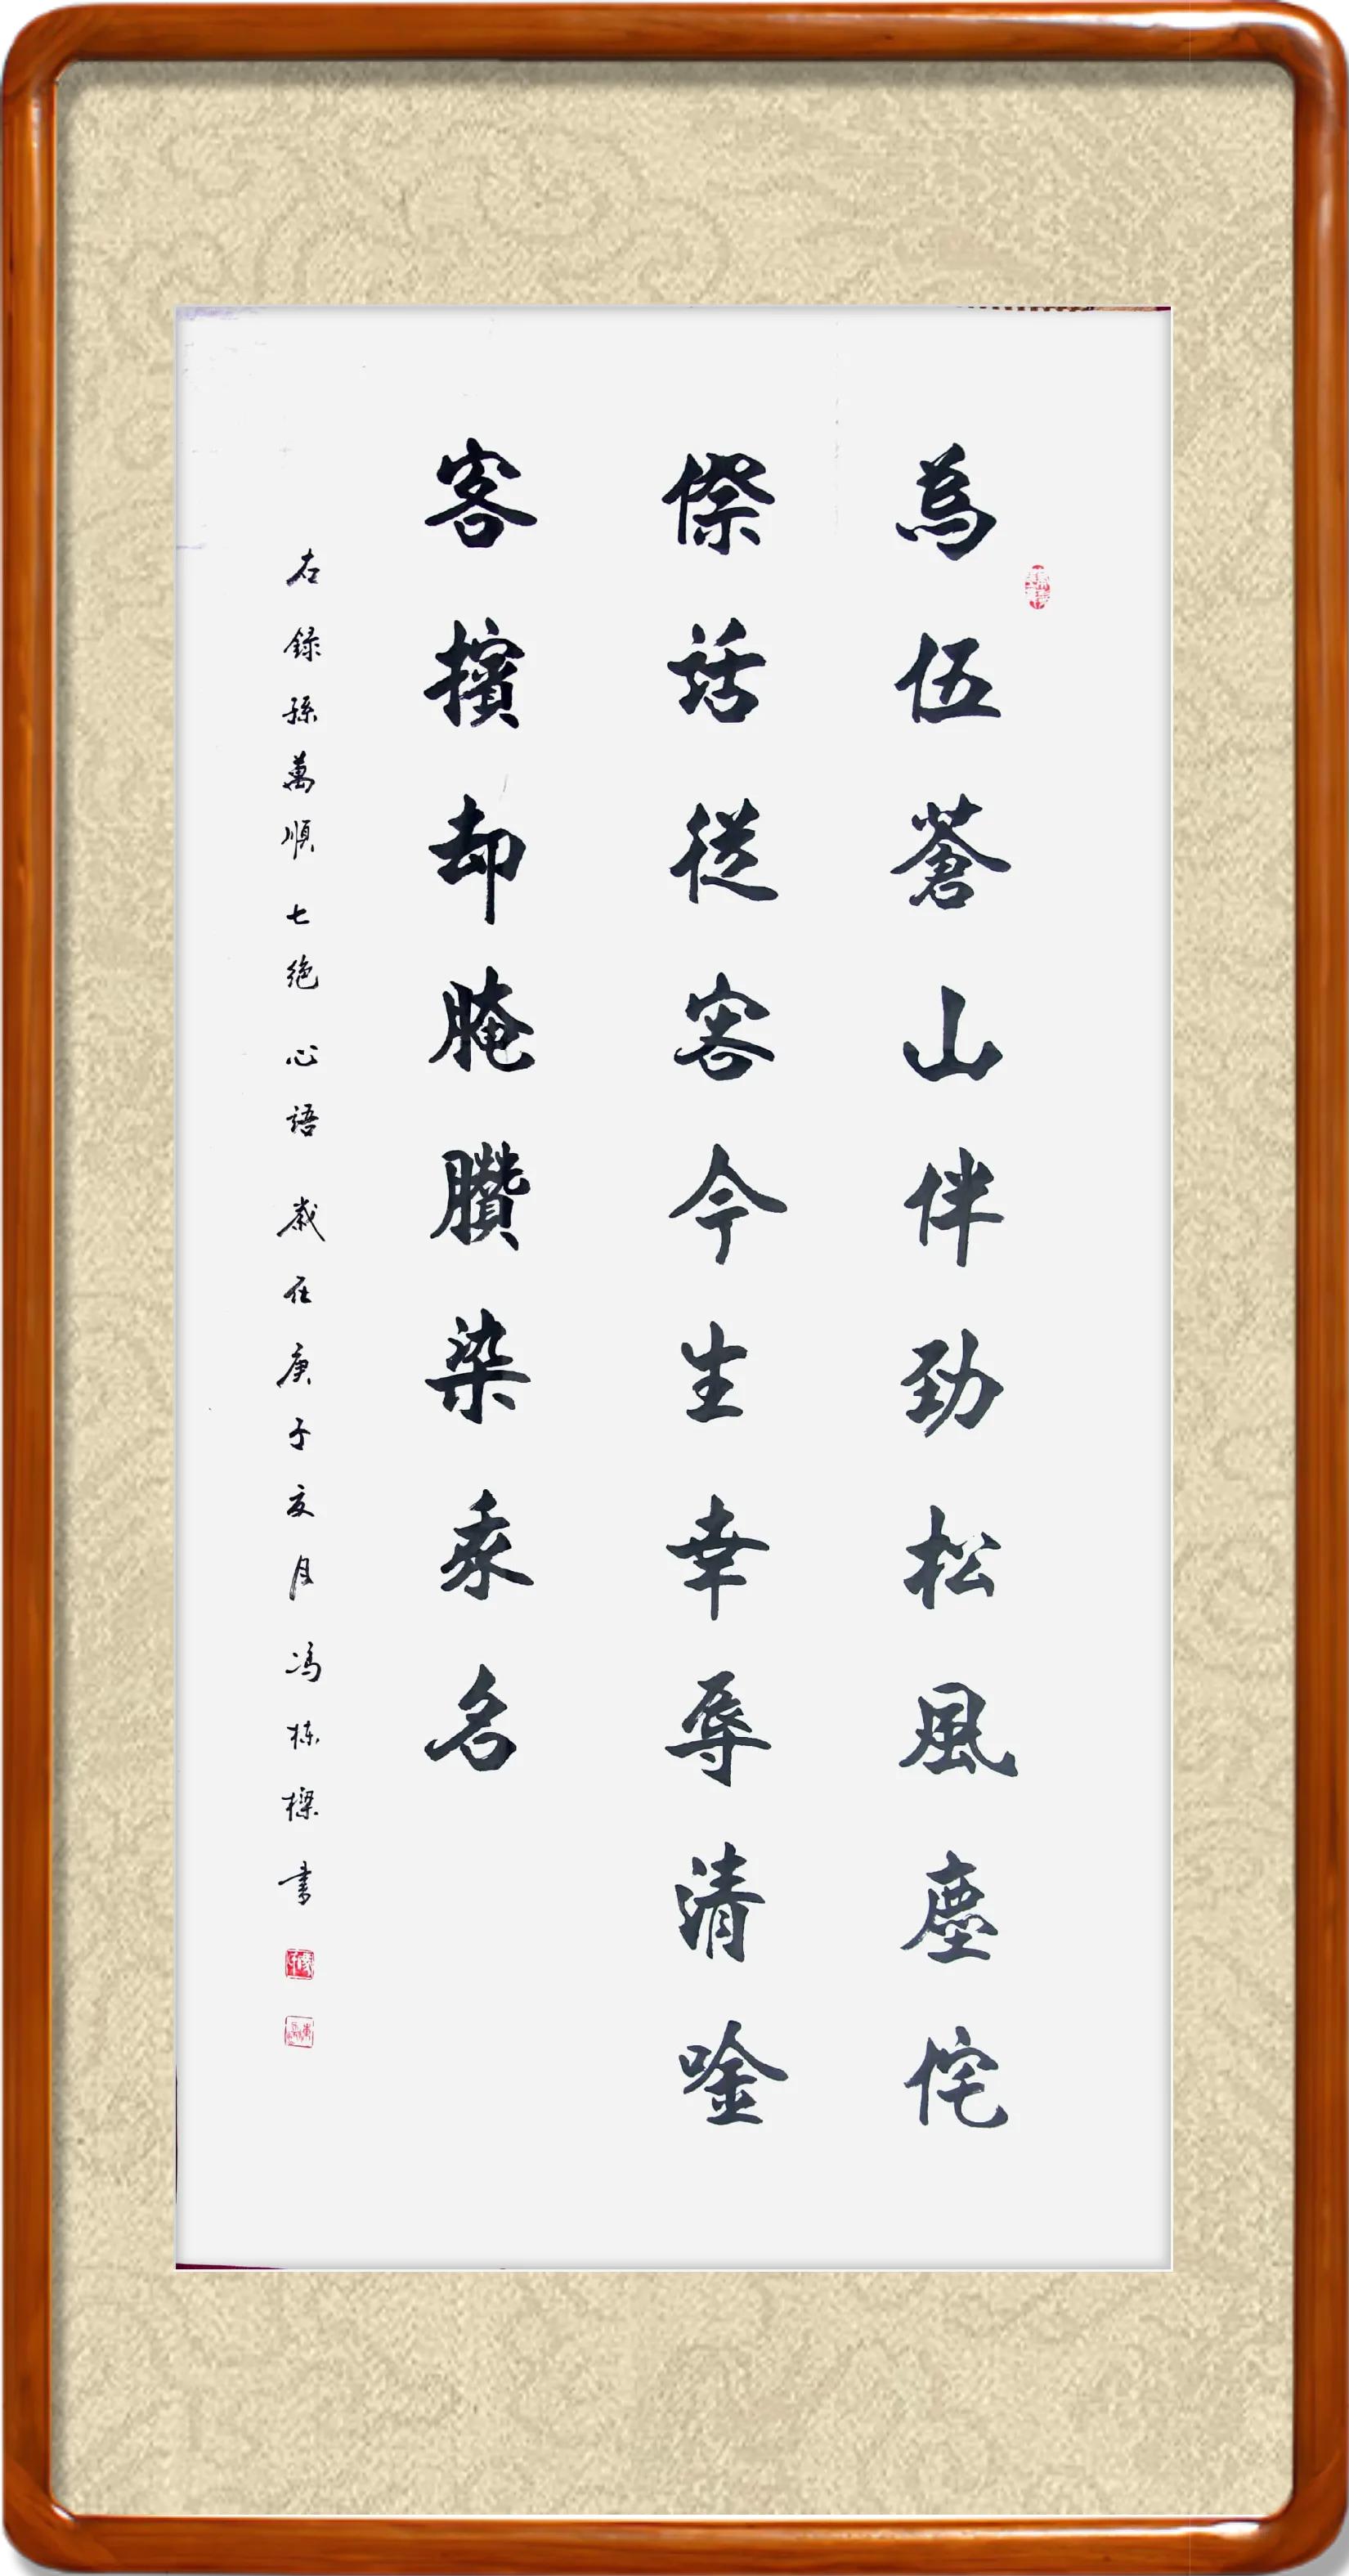 為伍蒼山伴勁松風塵侘
傺話從容今生幸辱清唫
客擯却腌臢染汞名
左錄孫萬順七絶 心語 歲在庚子夏月馮栋樑書